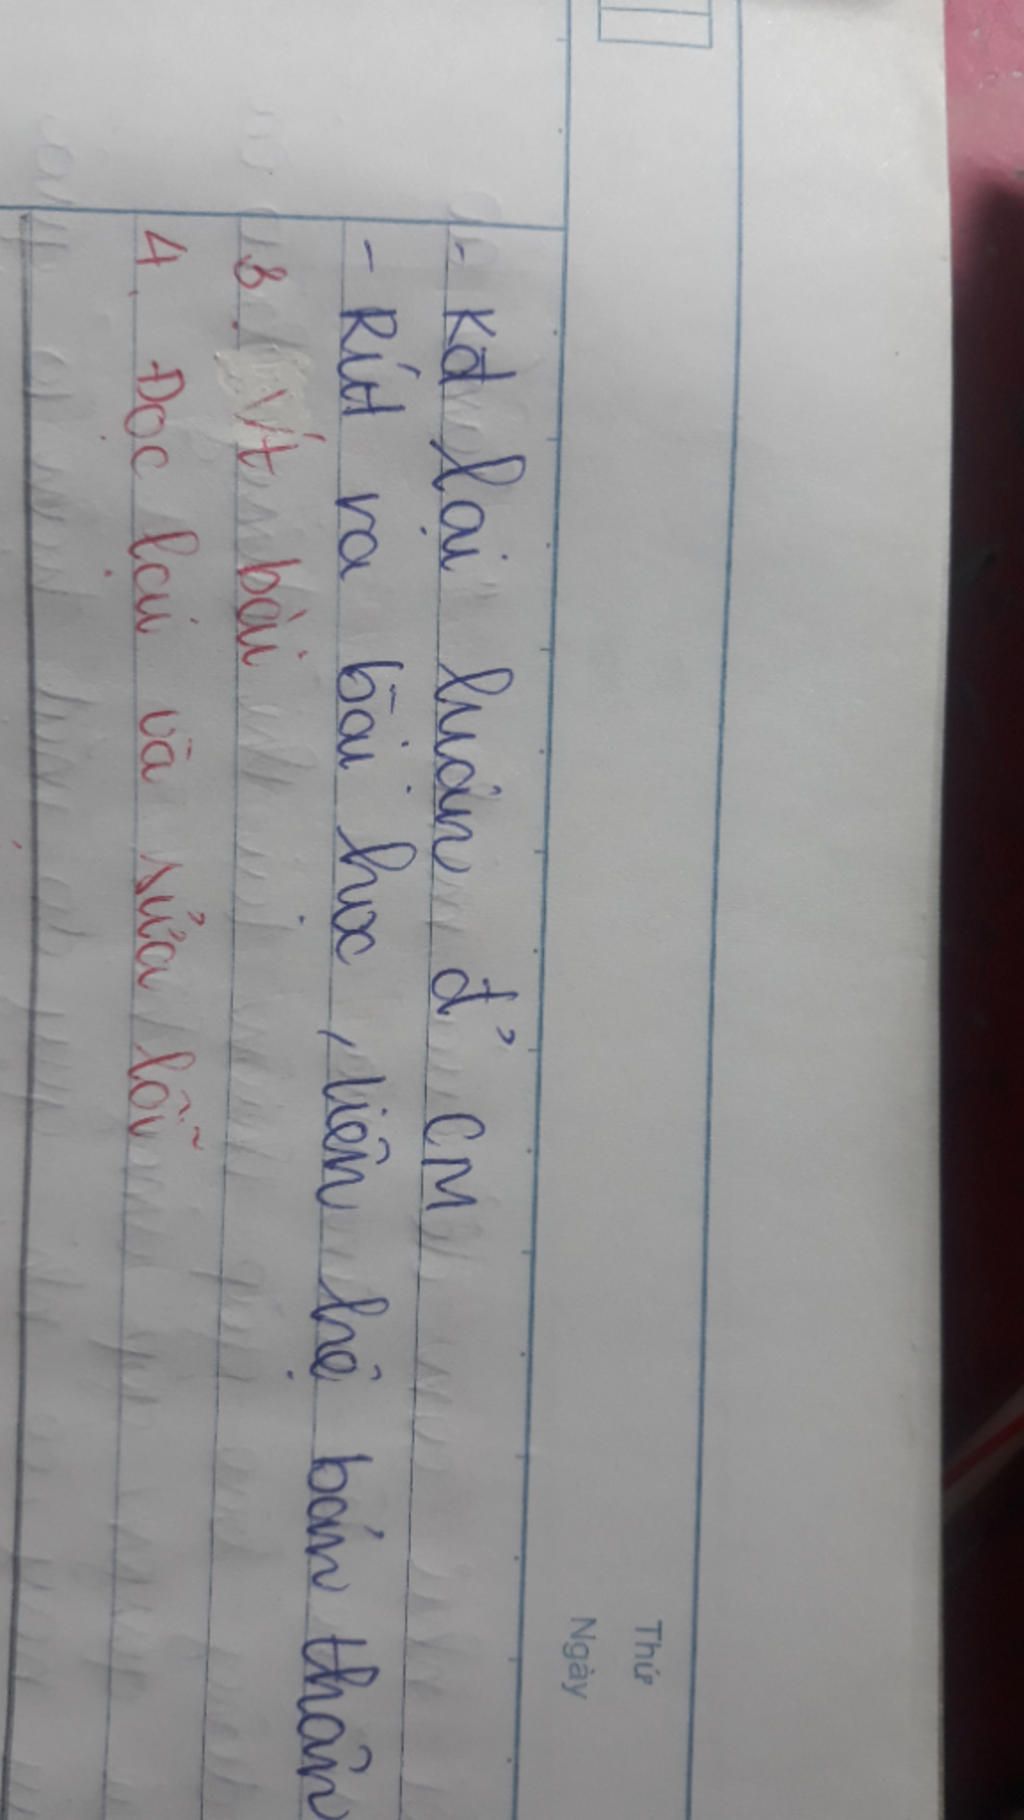 Thứ
Ngày
- Kđ lại luán đ' CM
- Rút ra bài học, liên hệ bản thân
3. Vt bài
4. Đọc lại và sửa lỗi